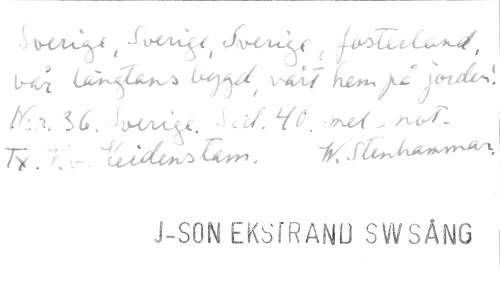 Sverige, Sverige, Sverige, fosterland,
vår längtans bygd, vårt hem på jorden!
N:r. 36. Sverige. Sid. 40. mel. not.
Tx. V. v. Heidenstam. W. Stenhammar.
J-SON EKSTRAND SWSÅNG